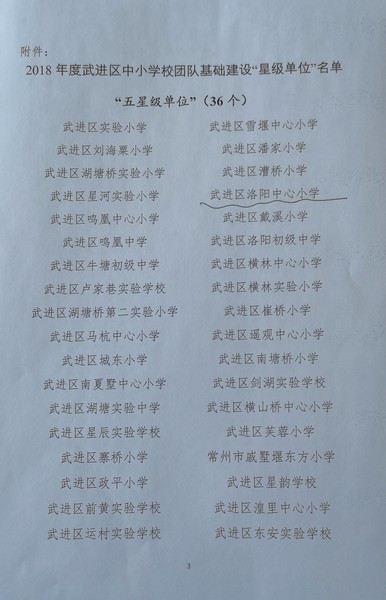 附件：
2018 年度武进区中小学校团队基础建设“星级单位”名单
“五星级单位”（36 个）
武进区实验小学 武进区雪堰中心小学
武进区刘海粟小学 武进区潘家小学
武进区湖塘桥实验小学 武进区漕桥小学
武进区星河实验小学 武进区洛阳中心小学
武进区鸣凰中心小学 武进区戴溪小学
武进区鸣凰中学 武进区洛阳初级中学
武进区牛塘初级中学 武进区横林中心小学
武进区卢家巷实验学校 武进区横林实验小学
武进区湖塘桥第二实验小学 武进区崔桥小学
武进区马杭中心小学 武进区遥观中心小学
武进区城东小学 武进区南塘桥小学
武进区南夏墅中心小学 武进区剑湖实验学校
武进区湖塘实验中学 武进区横山桥中心小学
武进区星辰实验学校 武进区芙蓉小学
武进区寨桥小学 常州市戚墅堰东方小学
武进区政平小学 武进区星韵学校
武进区前黄实验学校 武进区湟里中心小学
武进区运村实验学校 武进区东安实验学校
3